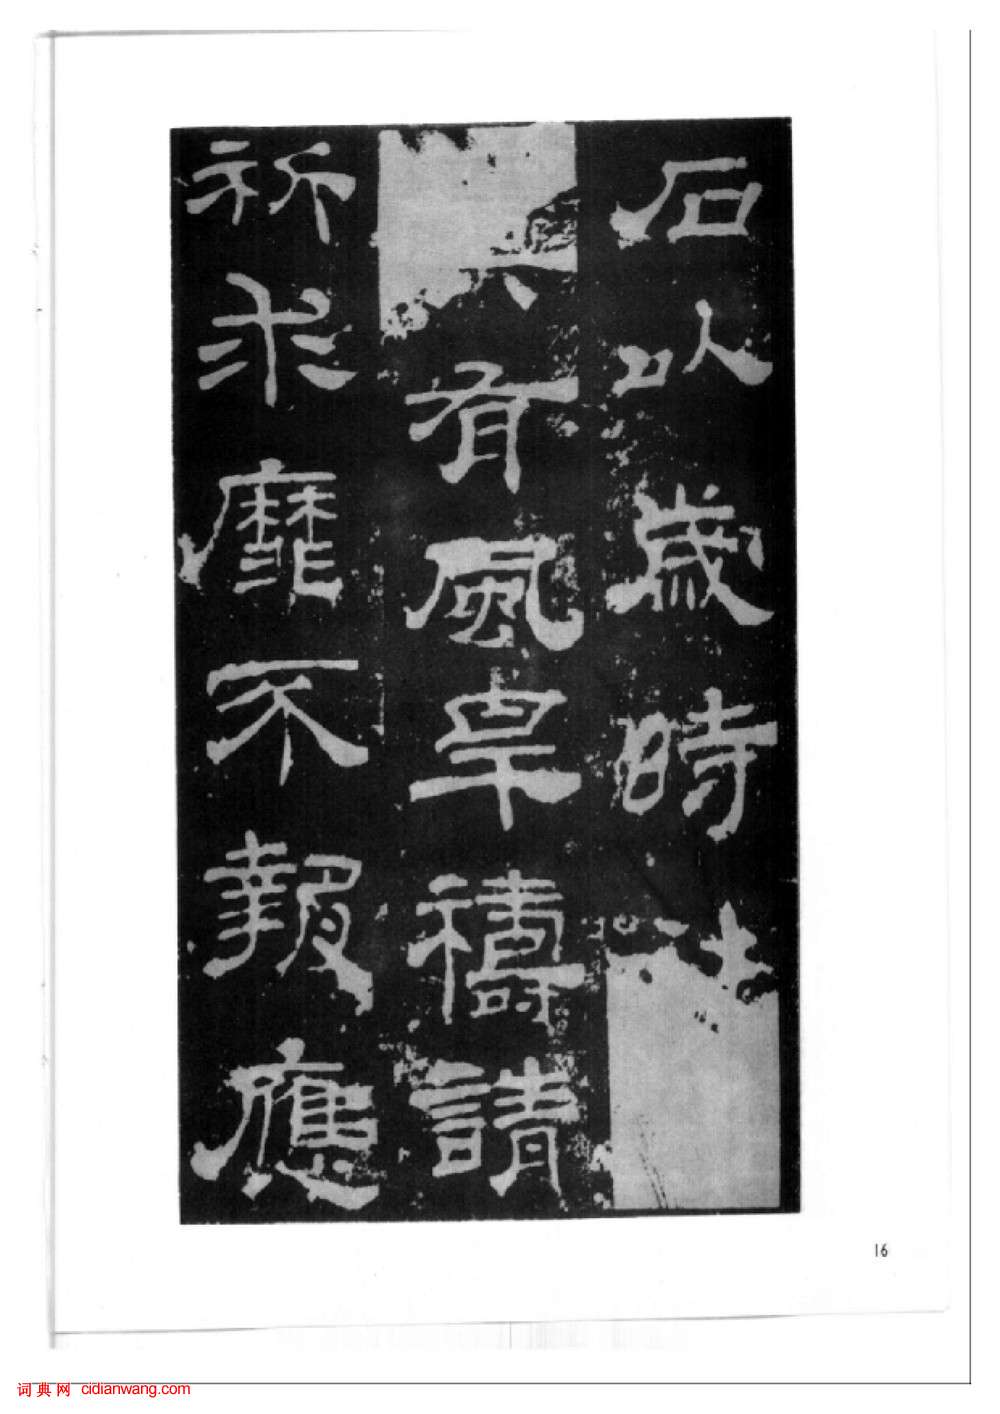 石以歲時
有風旱禱請
祈求靡不報應
16
词典网 cidianwang.com